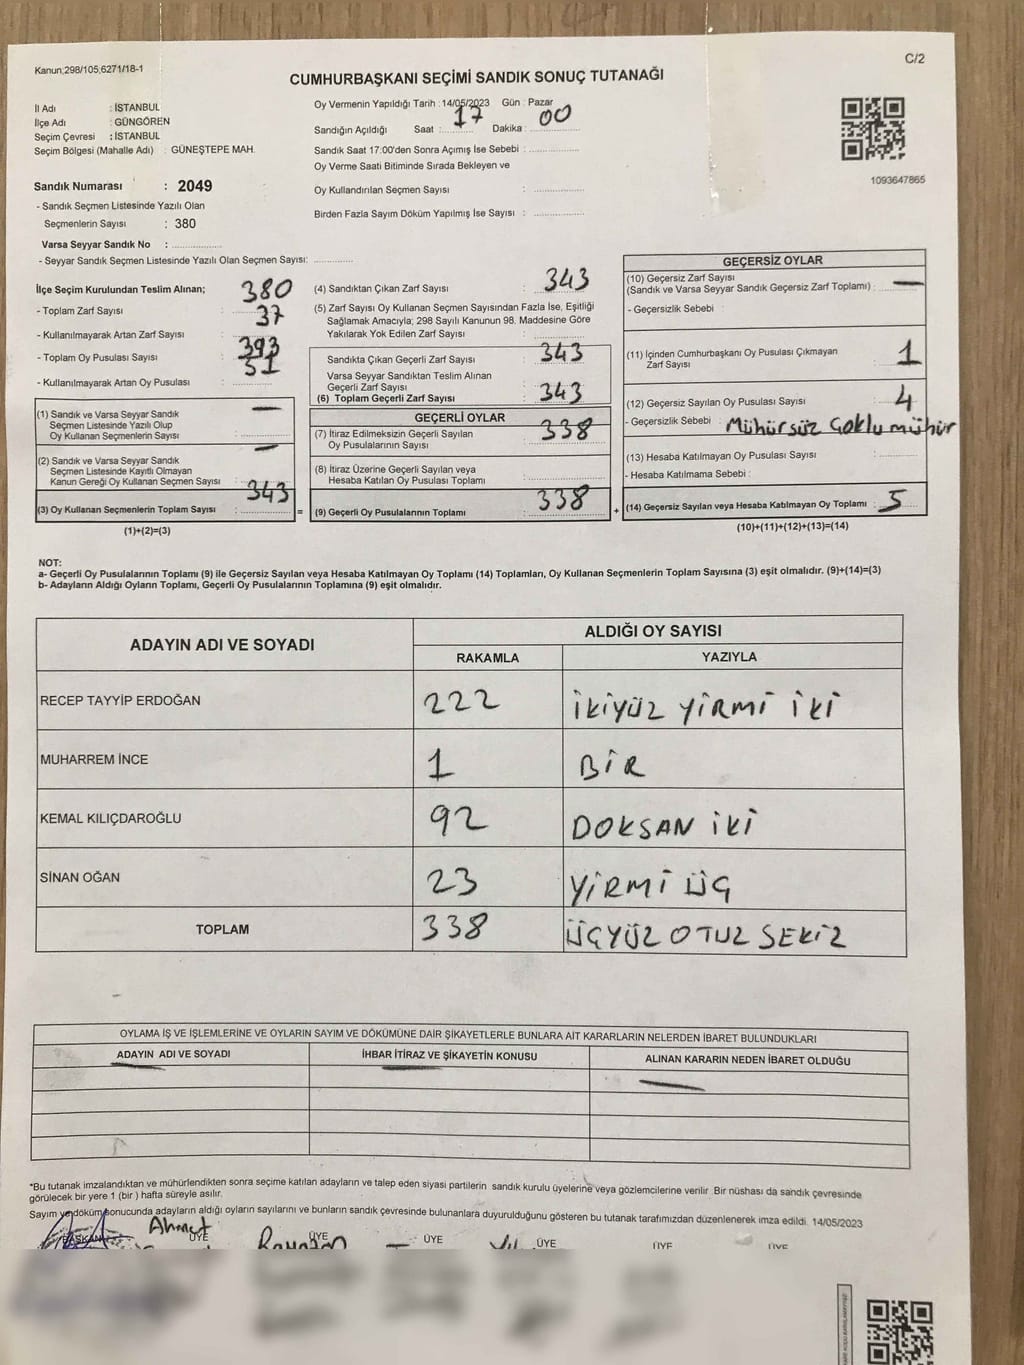 Kanun;298/105,6271/18-1
C/2
CUMHURBAŞKANI SEÇİMİ SANDIK SONUÇ TUTANAĞI
İl Adı : İSTANBUL
İlçe Adı : GÜNGÖREN
Seçim Çevresi : İSTANBUL
Seçim Bölgesi (Mahalle Adı) : GÜNEŞTEPE MAH.
Sandık Numarası : 2049
- Sandık Seçmen Listesinde Yazılı Olan
Seçmenlerin Sayısı : 380
Varsa Seyyar Sandık No :
- Seyyar Sandık Seçmen Listesinde Yazılı Olan Seçmen Sayısı:
Oy Vermenin Yapıldığı Tarih :14/05/2023 Gün : Pazar
Sandığın Açıldığı Saat : 17 Dakika : 00
Sandık Saat 17:00'den Sonra Açımış İse Sebebi :
Oy Verme Saati Bitiminde Sırada Bekleyen ve
Oy Kullandırılan Seçmen Sayısı :
Birden Fazla Sayım Döküm Yapılmış İse Sayısı :
1093647865
İlçe Seçim Kurulundan Teslim Alınan;
- Toplam Zarf Sayısı : 380
- Kullanılmayarak Artan Zarf Sayısı : 37
- Toplam Oy Pusulası Sayısı : 393
- Kullanılmayarak Artan Oy Pusulası : 51
(1) Sandık ve Varsa Seyyar Sandık
Seçmen Listesinde Yazılı Olup
Oy Kullanan Seçmenlerin Sayısı :
(2) Sandık ve Varsa Seyyar Sandık
Seçmen Listesinde Kayıtlı Olmayan
Kanun Gereği Oy Kullanan Seçmen Sayısı :
(3) Oy Kullanan Seçmenlerin Toplam Sayısı : 343 =
(1)+(2)=(3)
(4) Sandıktan Çıkan Zarf Sayısı : 343
(5) Zarf Sayısı Oy Kullanan Seçmen Sayısından Fazla İse, Eşitliği
Sağlamak Amacıyla; 298 Sayılı Kanunun 98. Maddesine Göre
Yakılarak Yok Edilen Zarf Sayısı :
Sandıkta Çıkan Geçerli Zarf Sayısı : 343
Varsa Seyyar Sandıktan Teslim Alınan
Geçerli Zarf Sayısı :
(6) Toplam Geçerli Zarf Sayısı : 343
GEÇERLİ OYLAR
(7) İtiraz Edilmeksizin Geçerli Sayılan
Oy Pusulalarının Sayısı : 338
(8) İtiraz Üzerine Geçerli Sayılan veya
Hesaba Katılan Oy Pusulası Toplamı :
(9) Geçerli Oy Pusulalarının Toplamı : 338 +
GEÇERSİZ OYLAR
(10) Geçersiz Zarf Sayısı
(Sandık ve Varsa Seyyar Sandık Geçersiz Zarf Toplamı) : —
- Geçersizlik Sebebi :
(11) İçinden Cumhurbaşkanı Oy Pusulası Çıkmayan
Zarf Sayısı : 1
(12) Geçersiz Sayılan Oy Pusulası Sayısı : 4
- Geçersizlik Sebebi : Mühürsüz Çoklu mühür
(13) Hesaba Katılmayan Oy Pusulası Sayısı :
- Hesaba Katılmama Sebebi :
(14) Geçersiz Sayılan veya Hesaba Katılmayan Oy Toplamı : 5
(10)+(11)+(12)+(13)=(14)
NOT:
a- Geçerli Oy Pusulalarının Toplamı (9) ile Geçersiz Sayılan veya Hesaba Katılmayan Oy Toplamı (14) Toplamları, Oy Kullanan Seçmenlerin Toplam Sayısına (3) eşit olmalıdır. (9)+(14)=(3)
b- Adayların Aldığı Oyların Toplamı, Geçerli Oy Pusulalarının Toplamına (9) eşit olmalıdır.
ADAYIN ADI VE SOYADI ALDIĞI OY SAYISI
RAKAMLA YAZIYLA
RECEP TAYYİP ERDOĞAN 222 İKİYÜZ YİRMİ İKİ
MUHARREM İNCE 1 BİR
KEMAL KILIÇDAROĞLU 92 DOKSAN İKİ
SİNAN OĞAN 23 YİRMİ ÜÇ
TOPLAM 338 ÜÇYÜZ OTUZ SEKİZ
OYLAMA İŞ VE İŞLEMLERİNE VE OYLARIN SAYIM VE DÖKÜMÜNE DAİR ŞİKAYETLERLE BUNLARA AİT KARARLARIN NELERDEN İBARET BULUNDUKLARI
ADAYIN ADI VE SOYADI İHBAR İTİRAZ VE ŞİKAYETİN KONUSU ALINAN KARARIN NEDEN İBARET OLDUĞU
*Bu tutanak imzalandıktan ve mühürlendikten sonra seçime katılan adayların ve talep eden siyasi partilerin sandık kurulu üyelerine veya gözlemcilerine verilir Bir nüshası da sandık çevresinde
görülecek bir yere 1 (bir ) hafta süreyle asılır.
Sayım ve döküm sonucunda adayların aldığı oyların sayılarını ve bunların sandık çevresinde bulunanlara duyurulduğunu gösteren bu tutanak tarafımızdan düzenlenerek imza edildi. 14/05/2023
BAŞKAN Ahmet ÜYE ÜYE ÜYE ÜYE ÜYE ÜYE